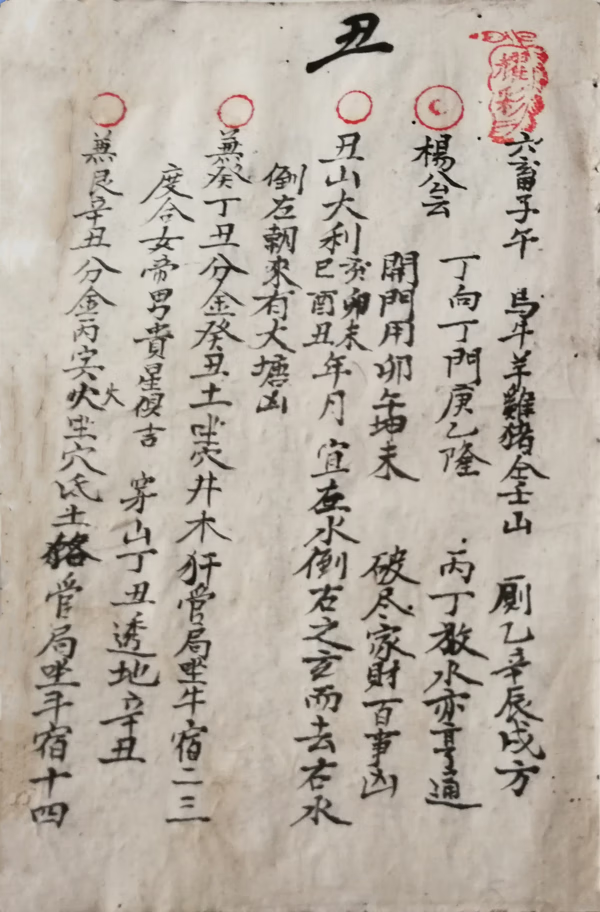 丑
耀彩
六畜子午 馬牛羊雞猪仝壬山 厠乙辛辰戌方
楊公云 丁向丁門庚乙隆 丙丁放水亦亨通
開門用卯午坤未 破尽家財百事凶
丑山大利亥卯未巳酉丑年月 宜左水倒右之玄而去右水
倒左朝來有大塘凶
兼癸丁丑分金癸丑土坐穴井木犴管局坐牛宿二三
度合女帝男貴星俱吉 穿山丁丑透地辛丑
兼艮辛丑分金丙寅火大坐穴氐土貉管局坐斗宿十四